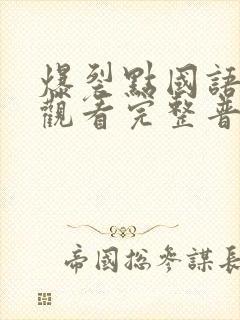 爆裂點國語
觀看完整普
帝國總參謀長